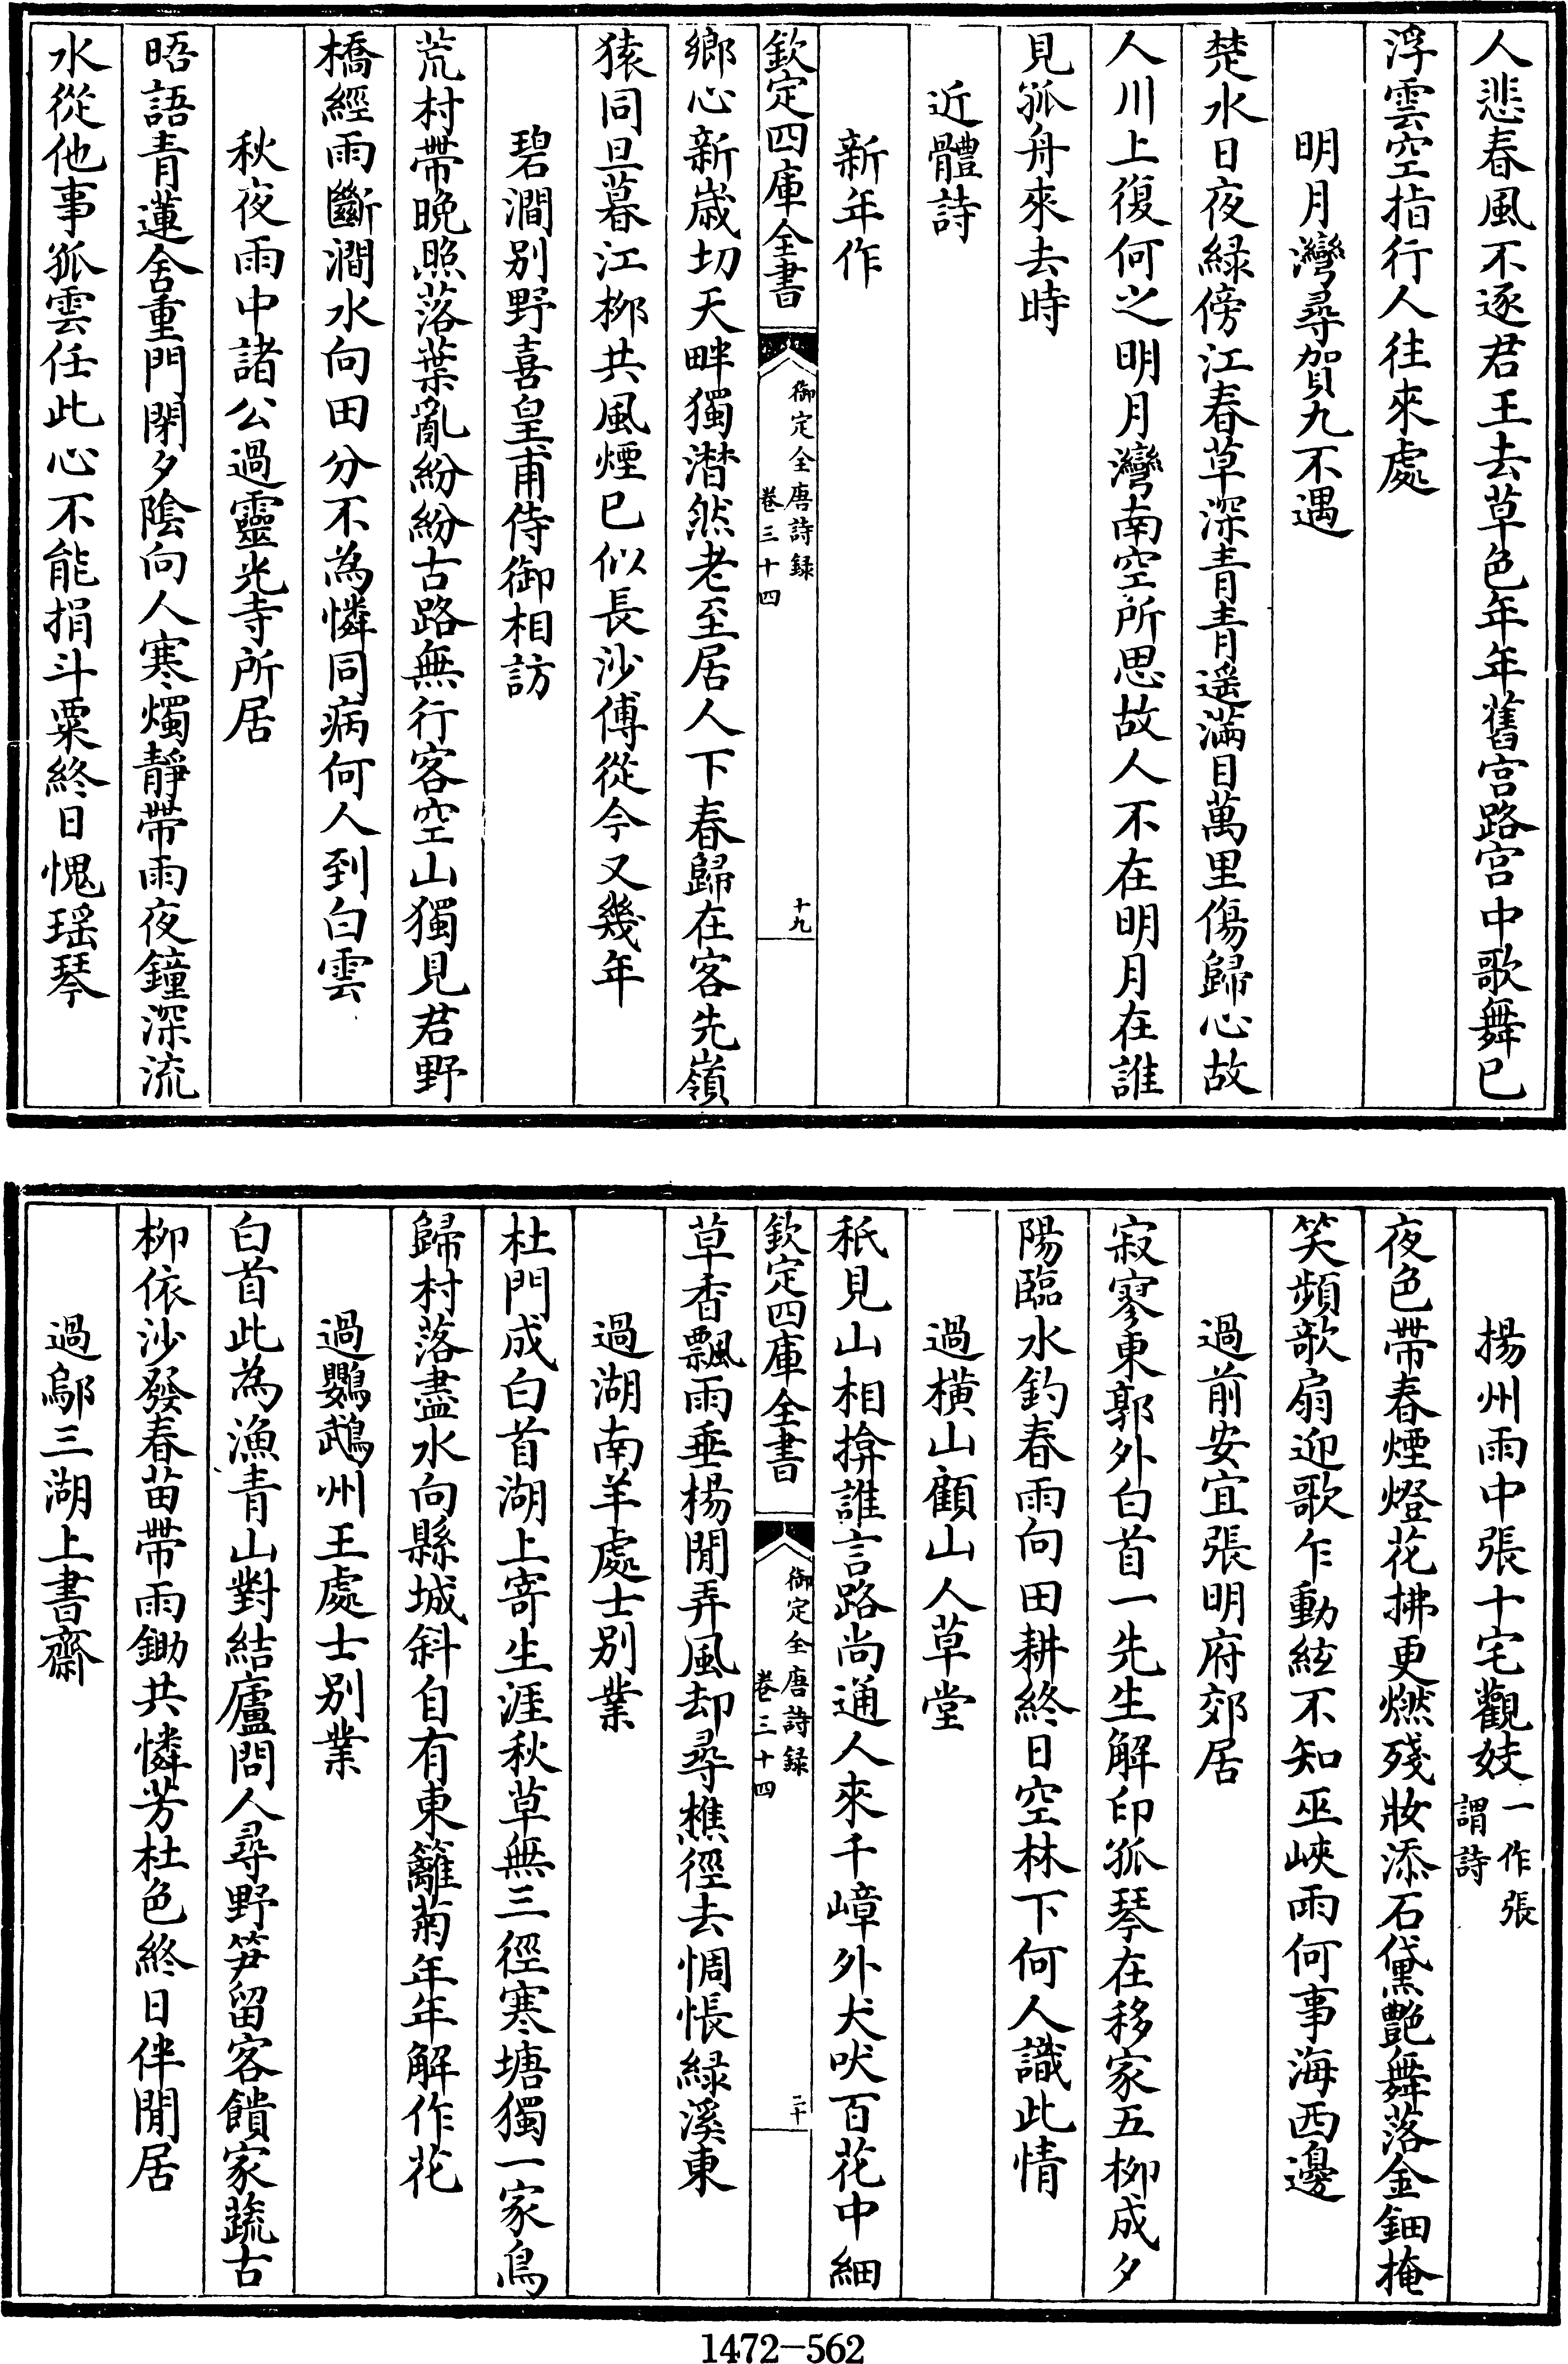 人悲春風不逐君王去草色年年舊宫路宫中歌舞已
浮雲空指行人往來處
明月灣尋賀九不遇
楚水日夜緑傍江春草深青青遥滿目萬里傷歸心故
人川上復何之明月灣南空所思故人不在明月在誰
見孤舟來去時
近體詩
新年作
欽定四庫全書
御定全唐詩録
卷三十四
十九
鄉心新歳切天畔獨潸然老至居人下春歸在客先嶺
猿同旦暮江栁共風煙已似長沙傅從今又幾年
碧澗别野喜皇甫侍御相訪
荒村帶晚照落葉亂紛紛古路無行客空山獨見君野
橋經雨斷澗水向田分不為憐同病何人到白雲
秋夜雨中諸公過靈光寺所居
晤語青蓮舍重門閉夕陰向人寒燭靜帶雨夜鐘深流
水從他事孤雲任此心不能捐斗粟終日愧瑶琴
揚州雨中張十宅觀妓一作張
謂詩
夜色帶春煙燈花拂更燃殘妝添石黛艷舞落金鈿掩
笑頻欹扇迎歌乍動絃不知巫峽雨何事海西邊
過前安宜張明府郊居
寂寥東郭外白首一先生解印孤琴在移家五栁成夕
陽臨水釣春雨向田耕終日空林下何人識此情
過橫山顧山人草堂
秖見山相揜誰言路尚通人來千嶂外犬吠百花中細
欽定四庫全書
御定全唐詩録
卷三十四
二十
草香飄雨垂楊閒弄風却尋樵徑去惆悵緑溪東
過湖南羊處士别業
杜門成白首湖上寄生涯秋草無三徑寒塘獨一家鳥
歸村落盡水向縣城斜自有東籬菊年年解作花
過鸚鵡州王處士别業
白首此為漁青山對結廬問人尋野笋留客饋家蔬古
栁依沙發春苗帶雨鋤共憐芳杜色終日伴閒居
過鄔三湖上書齋
1472-562